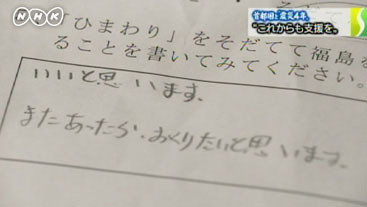 NHK
首都圏 震災4年
"これからも支援を"
ひまわり」をそだてて福島を
ることを書いてみてください。
いいと思います。
またあったら、おくりたいと思います。